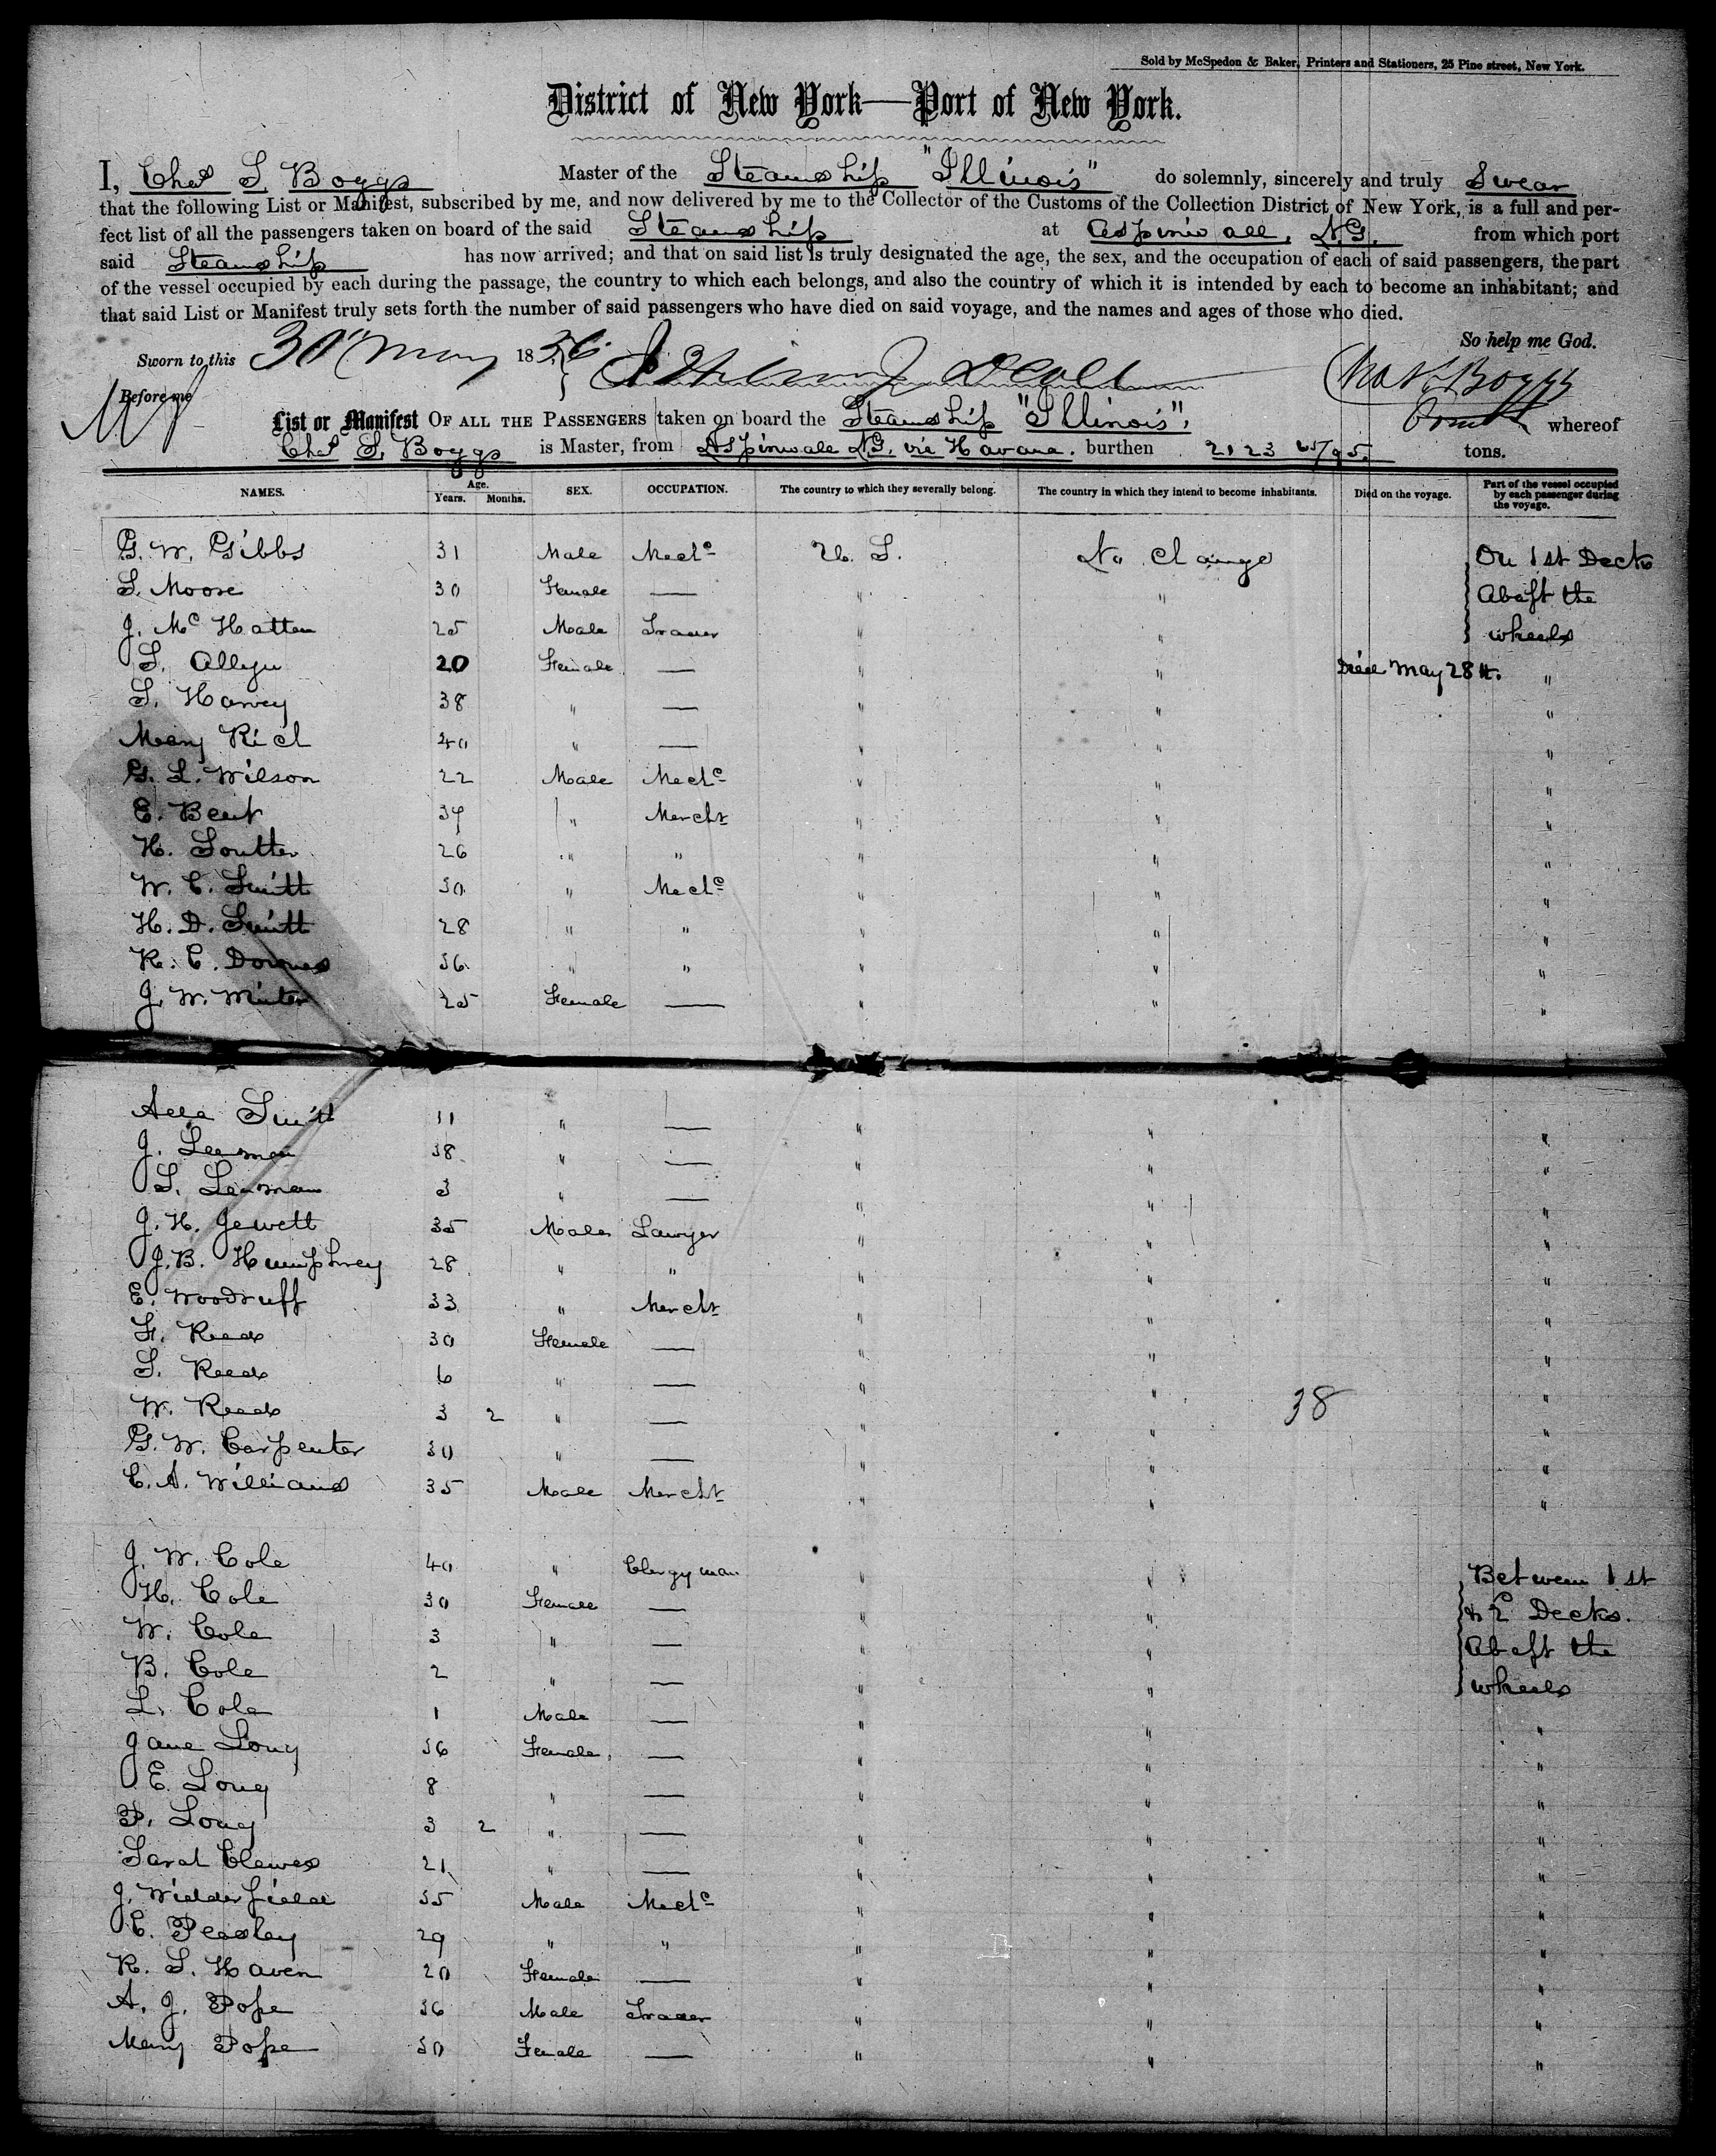 Sold by McSpedon & Baker, Printers and Stationers, 25 Pine street, New York.
District of New York—Port of New York.
I, Chas S. Boggs Master of the Steamship "Illinois" do solemnly, sincerely and truly Swear
that the following List or Manifest, subscribed by me, and now delivered by me to the Collector of the Customs of the Collection District of New York, is a full and per-
fect list of all the passengers taken on board of the said Steamship at Aspinwall, N.G. from which port
said Steamship has now arrived; and that on said list is truly designated the age, the sex, and the occupation of each of said passengers, the part
of the vessel occupied by each during the passage, the country to which each belongs, and also the country of which it is intended by each to become an inhabitant; and
that said List or Manifest truly sets forth the number of said passengers who have died on said voyage, and the names and ages of those who died.
So help me God.
Sworn to this 30th May 1856
Before me
Chas S. Boggs
List or Manifest OF ALL THE PASSENGERS taken on board the Steamship "Illinois", whereof
Chas S. Boggs is Master, from Aspinwall N.G. via Havana. burthen 2123 65/95 tons.
NAMES. Age. Years. Months. SEX. OCCUPATION. The country to which they severally belong. The country in which they intend to become inhabitants. Died on the voyage. Part of the vessel occupied by each passenger during the voyage.
G. W. Gibbs 31 Male Mechc U. S. No Change On 1st Deck
S. Moore 30 Female — " " Abaft the
J. Mc Hatten 25 Male Trader " " wheels
S. Allyn 20 Female — " " Died May 28th. "
S. Harvey 38 " — " " "
Mary Rich 40 " — " " "
G. L. Wilson 22 Male Mechc " " "
E. Bent 34 " Mercht " " "
H. Soutter 26 " " " " "
W. C. Smith 30 " Mechc " " "
H. D. Smith 28 " " " " "
R. C. Downes 36 " " " " "
J. W. Minter 25 Female — " " "
Alla Smith 11 " — " " "
J. Leeman 38 " — " " "
S. Leeman 3 " — " " "
J. H. Jewett 35 Male Lawyer " " "
J. B. Humphrey 28 " " " " "
E. Woodruff 33 " Mercht " " "
F. Reed 30 Female — " " "
S. Reed 6 " — " " "
W. Reed 3 2 " — " " "
38
G. W. Carpenter 30 " — " " "
C. A. Williams 35 Male Mercht " " "
J. W. Cole 40 " Clergyman " " Between 1st
H. Cole 30 Female — " " & 2 Decks.
W. Cole 3 " — " " Abaft the
B. Cole 2 " — " " wheels
L. Cole 1 Male — " " "
Jane Long 36 Female — " " "
E. Long 8 " — " " "
P. Long 3 2 " — " " "
Sarah Clewes 21 " — " " "
J. Widderfield 35 Male Mechc " " "
C. Peasley 29 " " " " "
R. S. Haven 20 Female — " " "
A. J. Pope 36 Male Trader " " "
Mary Pope 30 Female — " " "